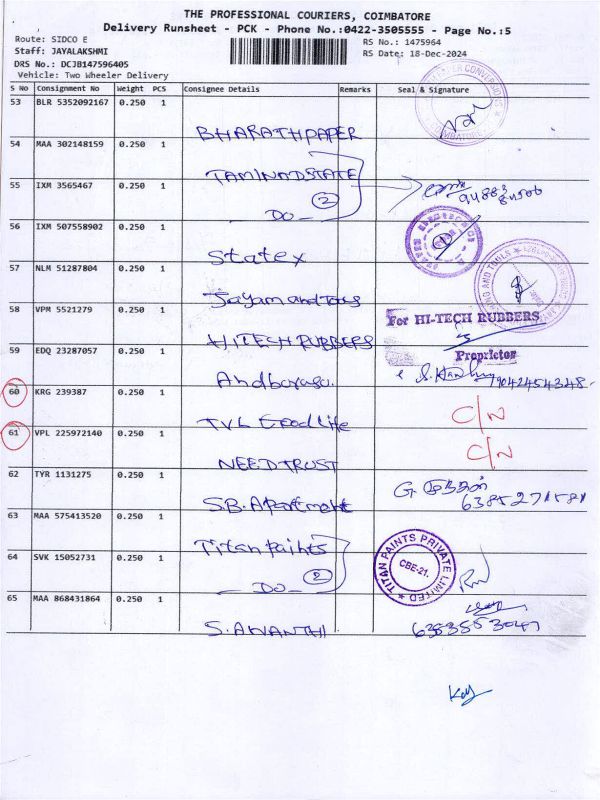 THE PROFESSIONAL COURIERS, COIMBATORE
Delivery Runsheet - PCK - Phone No.:0422-3505555 - Page No.:5
Route: SIDCO E
RS No.: 1475964
Staff: JAYALAKSHMI
RS Date: 18-Dec-2024
DRS No.: DCJB147596405
Vehicle: Two Wheeler Delivery
S No Consignment No Weight PCS Consignee Details Remarks Seal & Signature
53 BLR 5352092167 0.250 1 BHARATHPAPER
COIMBATORE
54 MAA 302148159 0.250 1 TAMILNADSTATE
55 IXM 3565467 0.250 1 DO 2
56 IXM 507558902 0.250 1 Statex
57 NLM 51287804 0.250 1 Jayam and Tools
58 VPM 5521279 0.250 1 HITECH RUBBERS
For HI-TECH RUBBERS
Proprietor
59 EDQ 23287057 0.250 1
9042454348
60 KRG 239387 0.250 1 TVL Good Life C/N
61 VPL 225972140 0.250 1 NEEDTRUST C/N
62 TYR 1131275 0.250 1 S.B. Apartment
6385271581
63 MAA 575413520 0.250 1 Titan paints
TITAN PAINTS PRIVATE LIMITED
CBE-21.
64 SVK 15052731 0.250 1 DO 2
65 MAA 868431864 0.250 1 S. AVANTHI
6383553047